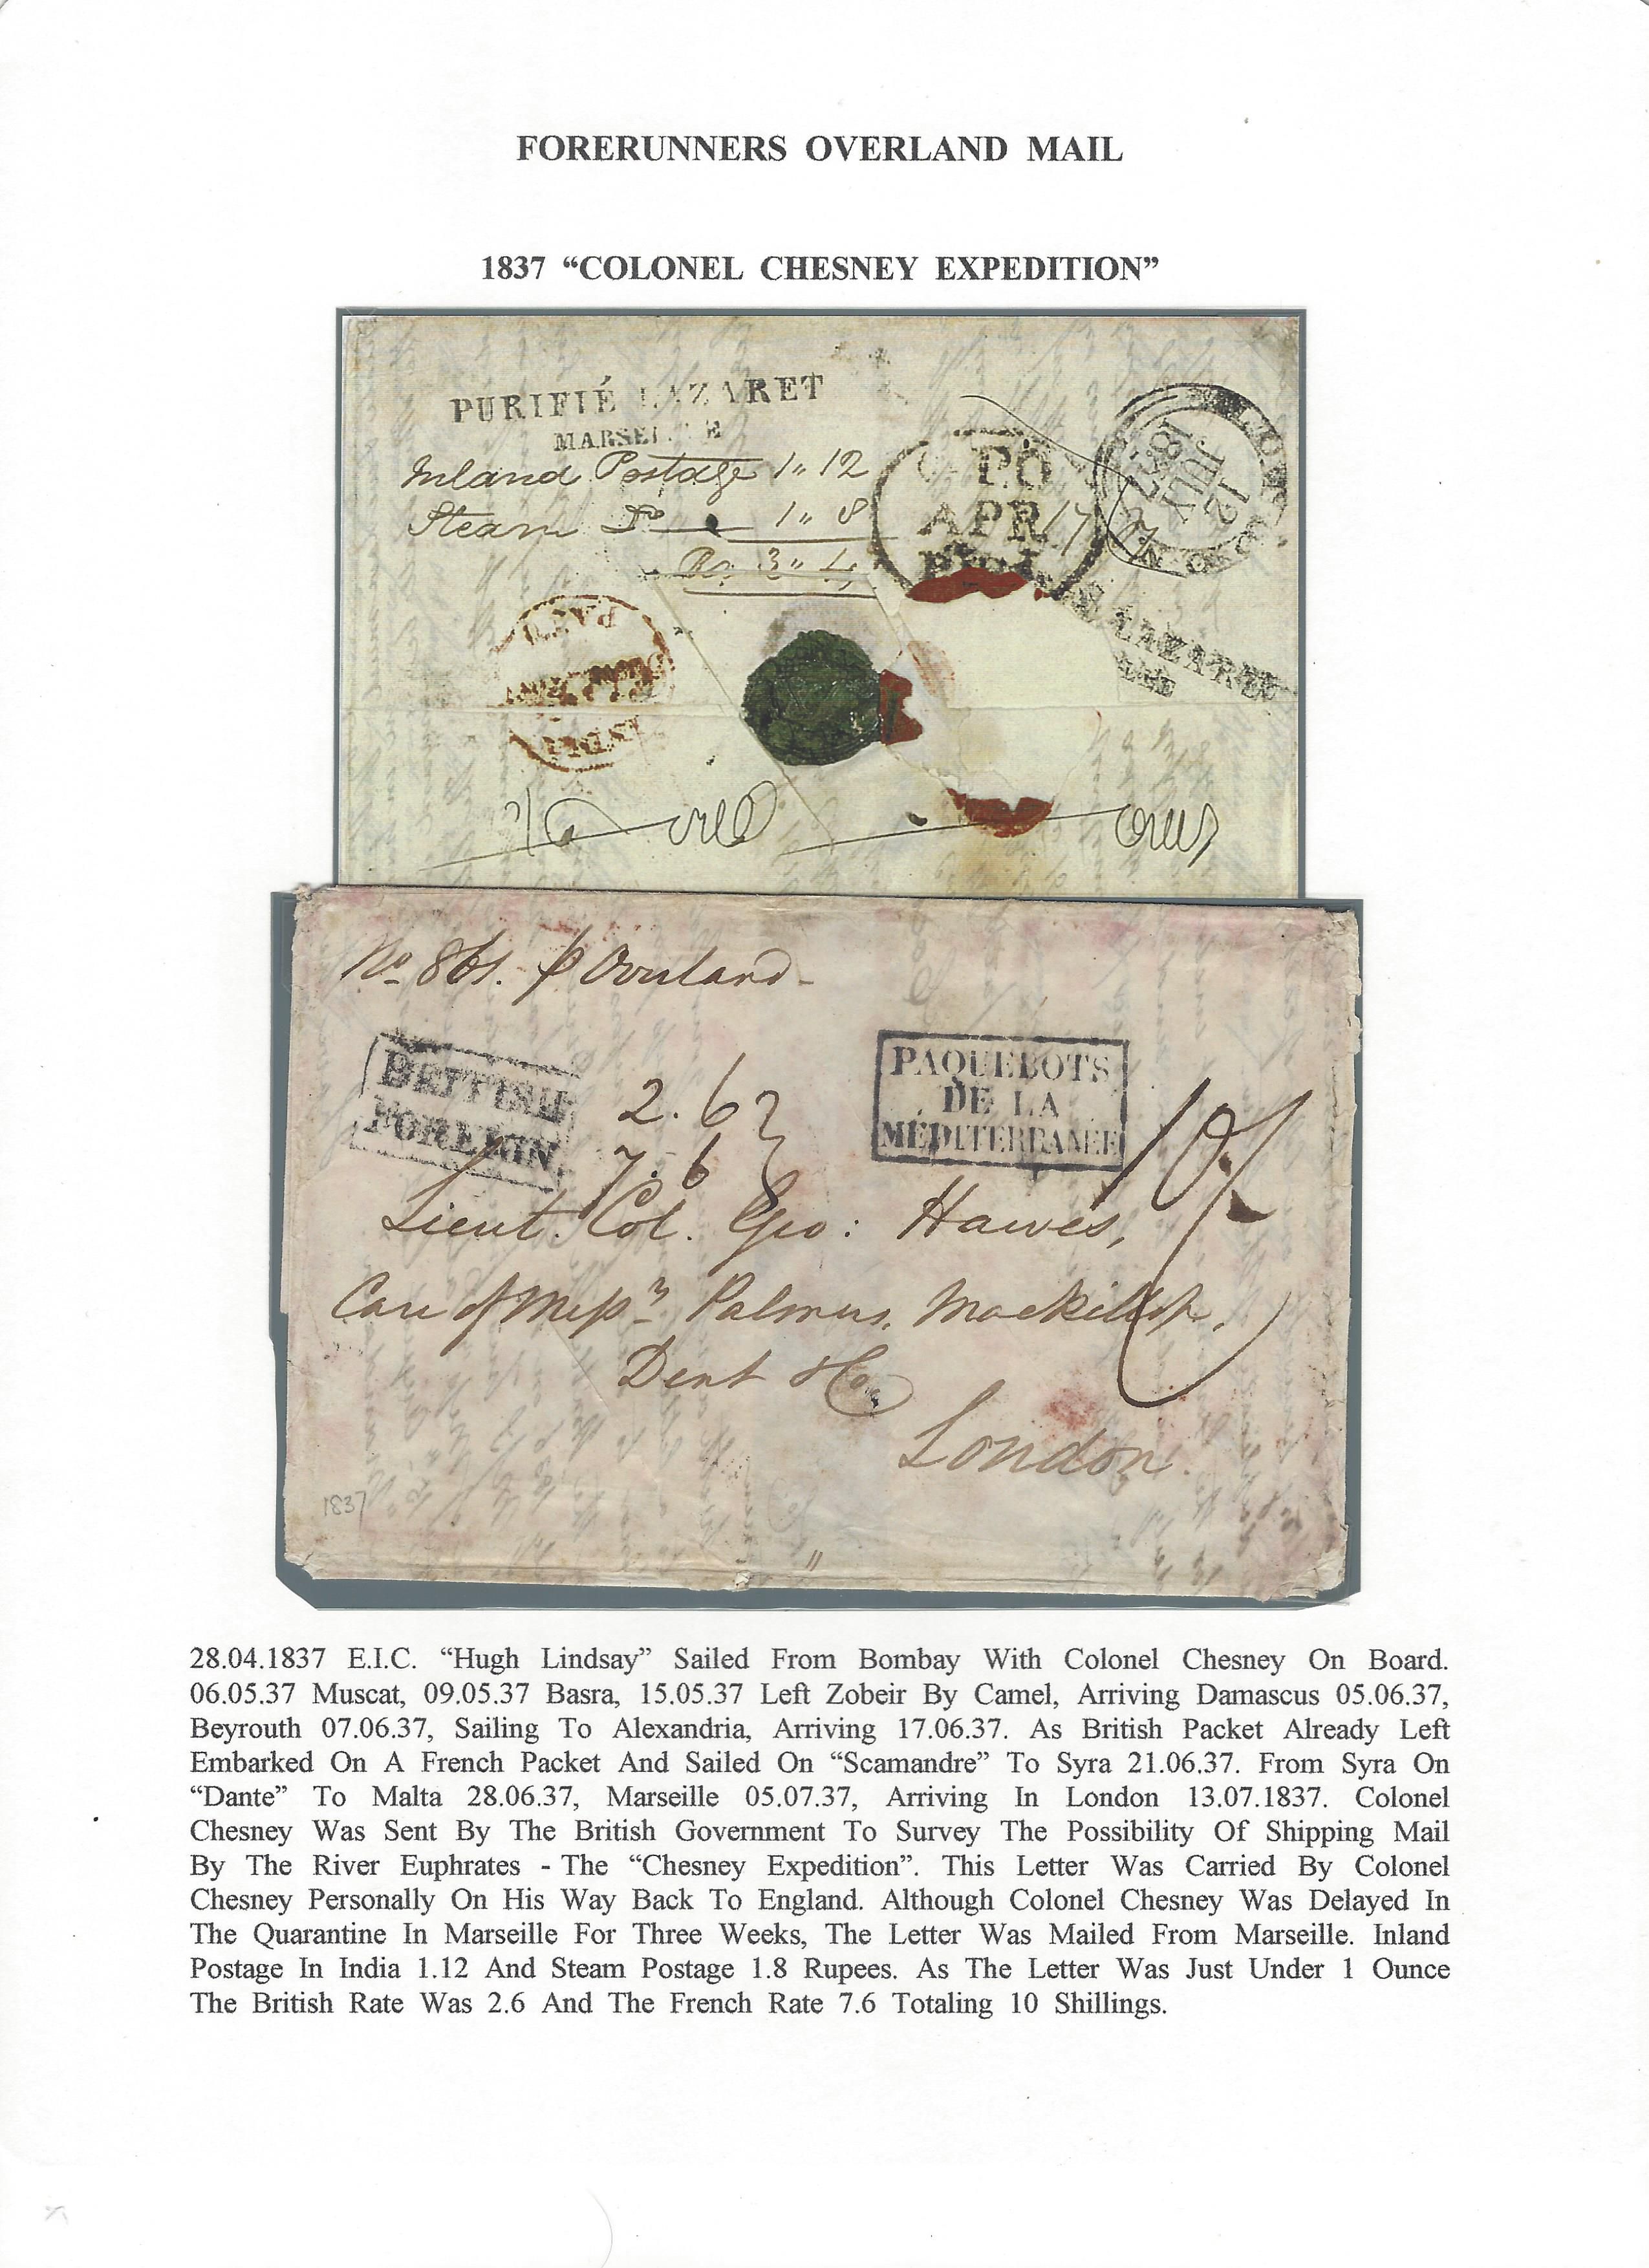 FORERUNNERS OVERLAND MAIL
1837 “COLONEL CHESNEY EXPEDITION”
PURIFIÉ LAZARET
MARSEILLE
Inland Postage 1" 12
Steam Do 1" 8
Rs 3" 4
PO
APR 17
LONDON
12
JULY
1837
LAZARET
PAID
INDIA
No 861. p Overland -
BRITISH
FOREIGN
2.6
7.6
PAQUEBOTS
DE LA
MÉDITERRANÉE
10/
Lieut. Col. Geo: Hawes,
Care of Messrs Palmers, Mackillop,
Dent & Co
London.
1837
28.04.1837 E.I.C. “Hugh Lindsay” Sailed From Bombay With Colonel Chesney On Board.
06.05.37 Muscat, 09.05.37 Basra, 15.05.37 Left Zobeir By Camel, Arriving Damascus 05.06.37,
Beyrouth 07.06.37, Sailing To Alexandria, Arriving 17.06.37. As British Packet Already Left
Embarked On A French Packet And Sailed On “Scamandre” To Syra 21.06.37. From Syra On
“Dante” To Malta 28.06.37, Marseille 05.07.37, Arriving In London 13.07.1837. Colonel
Chesney Was Sent By The British Government To Survey The Possibility Of Shipping Mail
By The River Euphrates - The “Chesney Expedition”. This Letter Was Carried By Colonel
Chesney Personally On His Way Back To England. Although Colonel Chesney Was Delayed In
The Quarantine In Marseille For Three Weeks, The Letter Was Mailed From Marseille. Inland
Postage In India 1.12 And Steam Postage 1.8 Rupees. As The Letter Was Just Under 1 Ounce
The British Rate Was 2.6 And The French Rate 7.6 Totaling 10 Shillings.